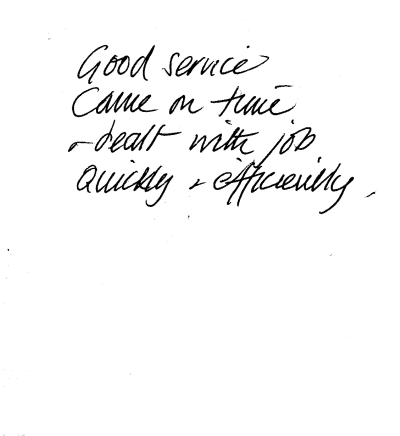 Good service
Came on time
& dealt with job
Quickly & efficiently.